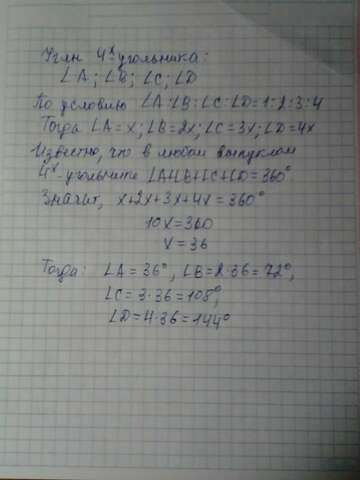 Углы 4х угольника:
∠A; ∠B; ∠C; ∠D
По условию ∠A:∠B:∠C:∠D=1:2:3:4
Тогда ∠A=x; ∠B=2x; ∠C=3x; ∠D=4x
Известно, что в любом выпуклом
4х-угольнике ∠A+∠B+∠C+∠D=360°
Значит, x+2x+3x+4x=360°
10x=360
x=36
Тогда: ∠A=36°, ∠B=2·36=72°,
∠C=3·36=108°
∠D=4·36=144°